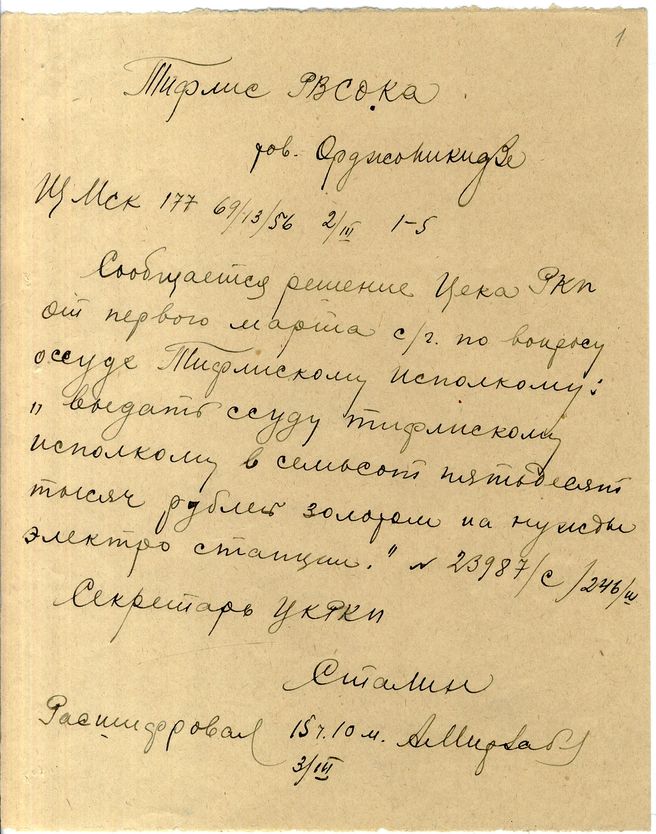 1
Тифлис РВСОКА
тов. Орджоникидзе
Щ Мск 177 69/13/56 2/III 1-5
Сообщается решение Цека РКП
от первого марта с/г. по вопросу
оссуде Тифлискому исполкому:
„выдать ссуду тифлискому
исполкому в семьсот пятьдесят
тысяч рублей золотом на нужды
электро станции." N 23987/с/246/III
Секретарь ЦКРКП
Сталин
Расшифровал 15 ч. 10 м.
3/III